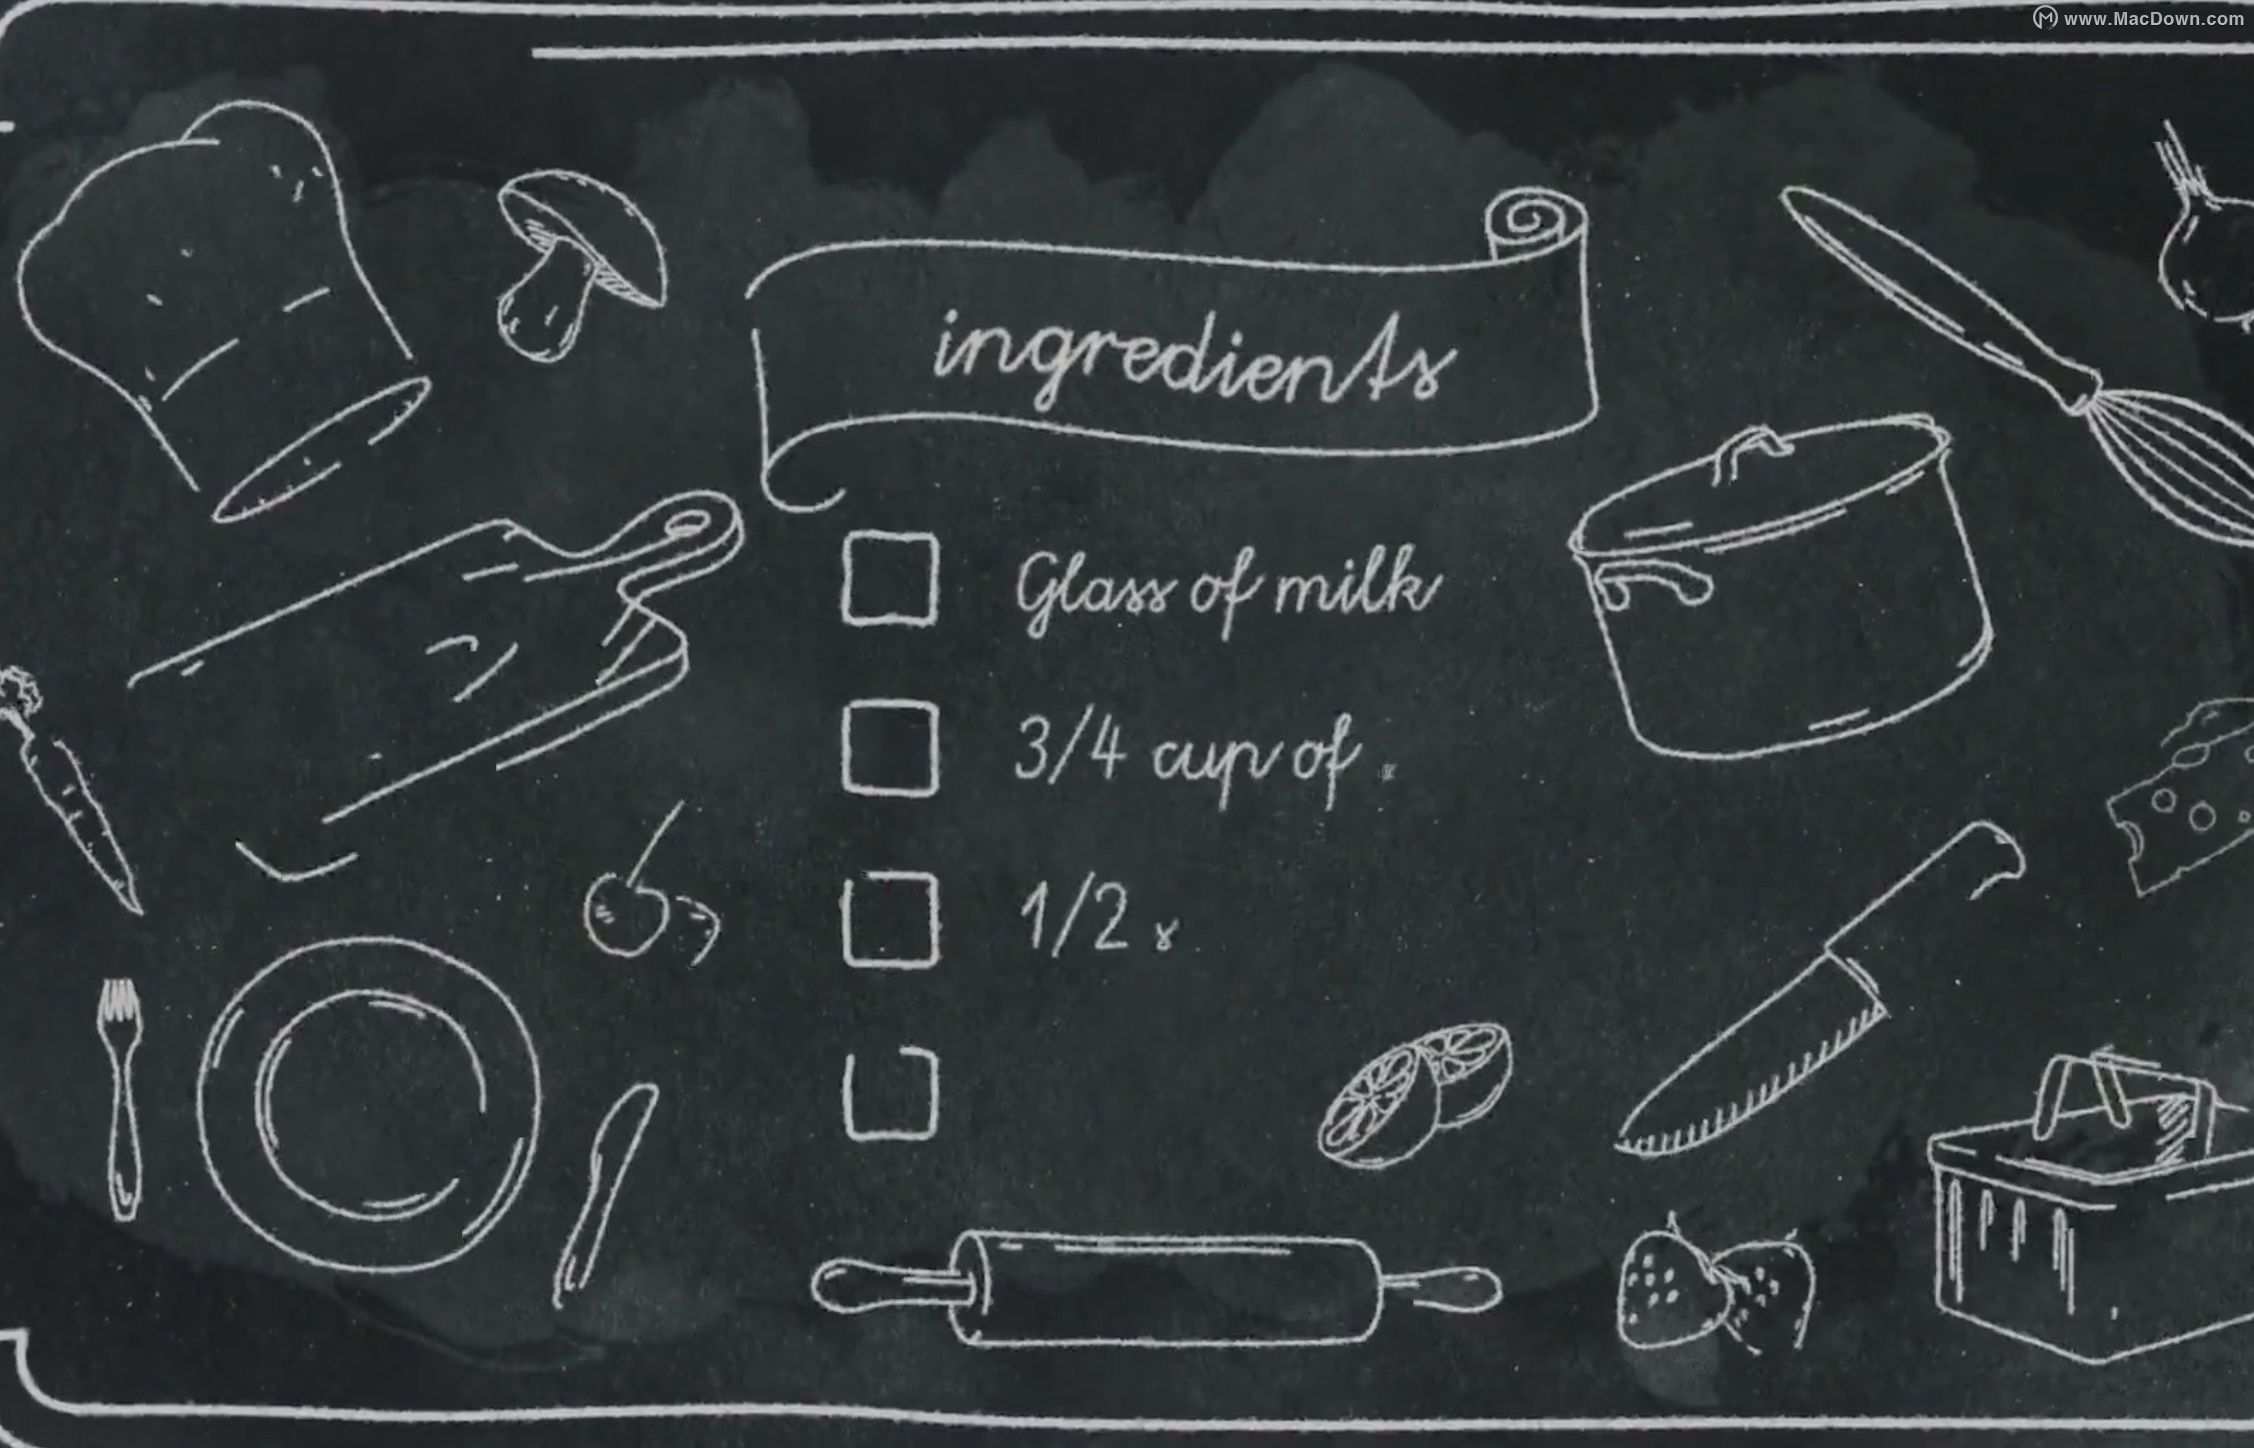 www.MacDown.com
ingredients
Glass of milk
3/4 cup of
1/2